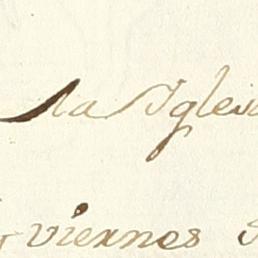 la Igles
viernes